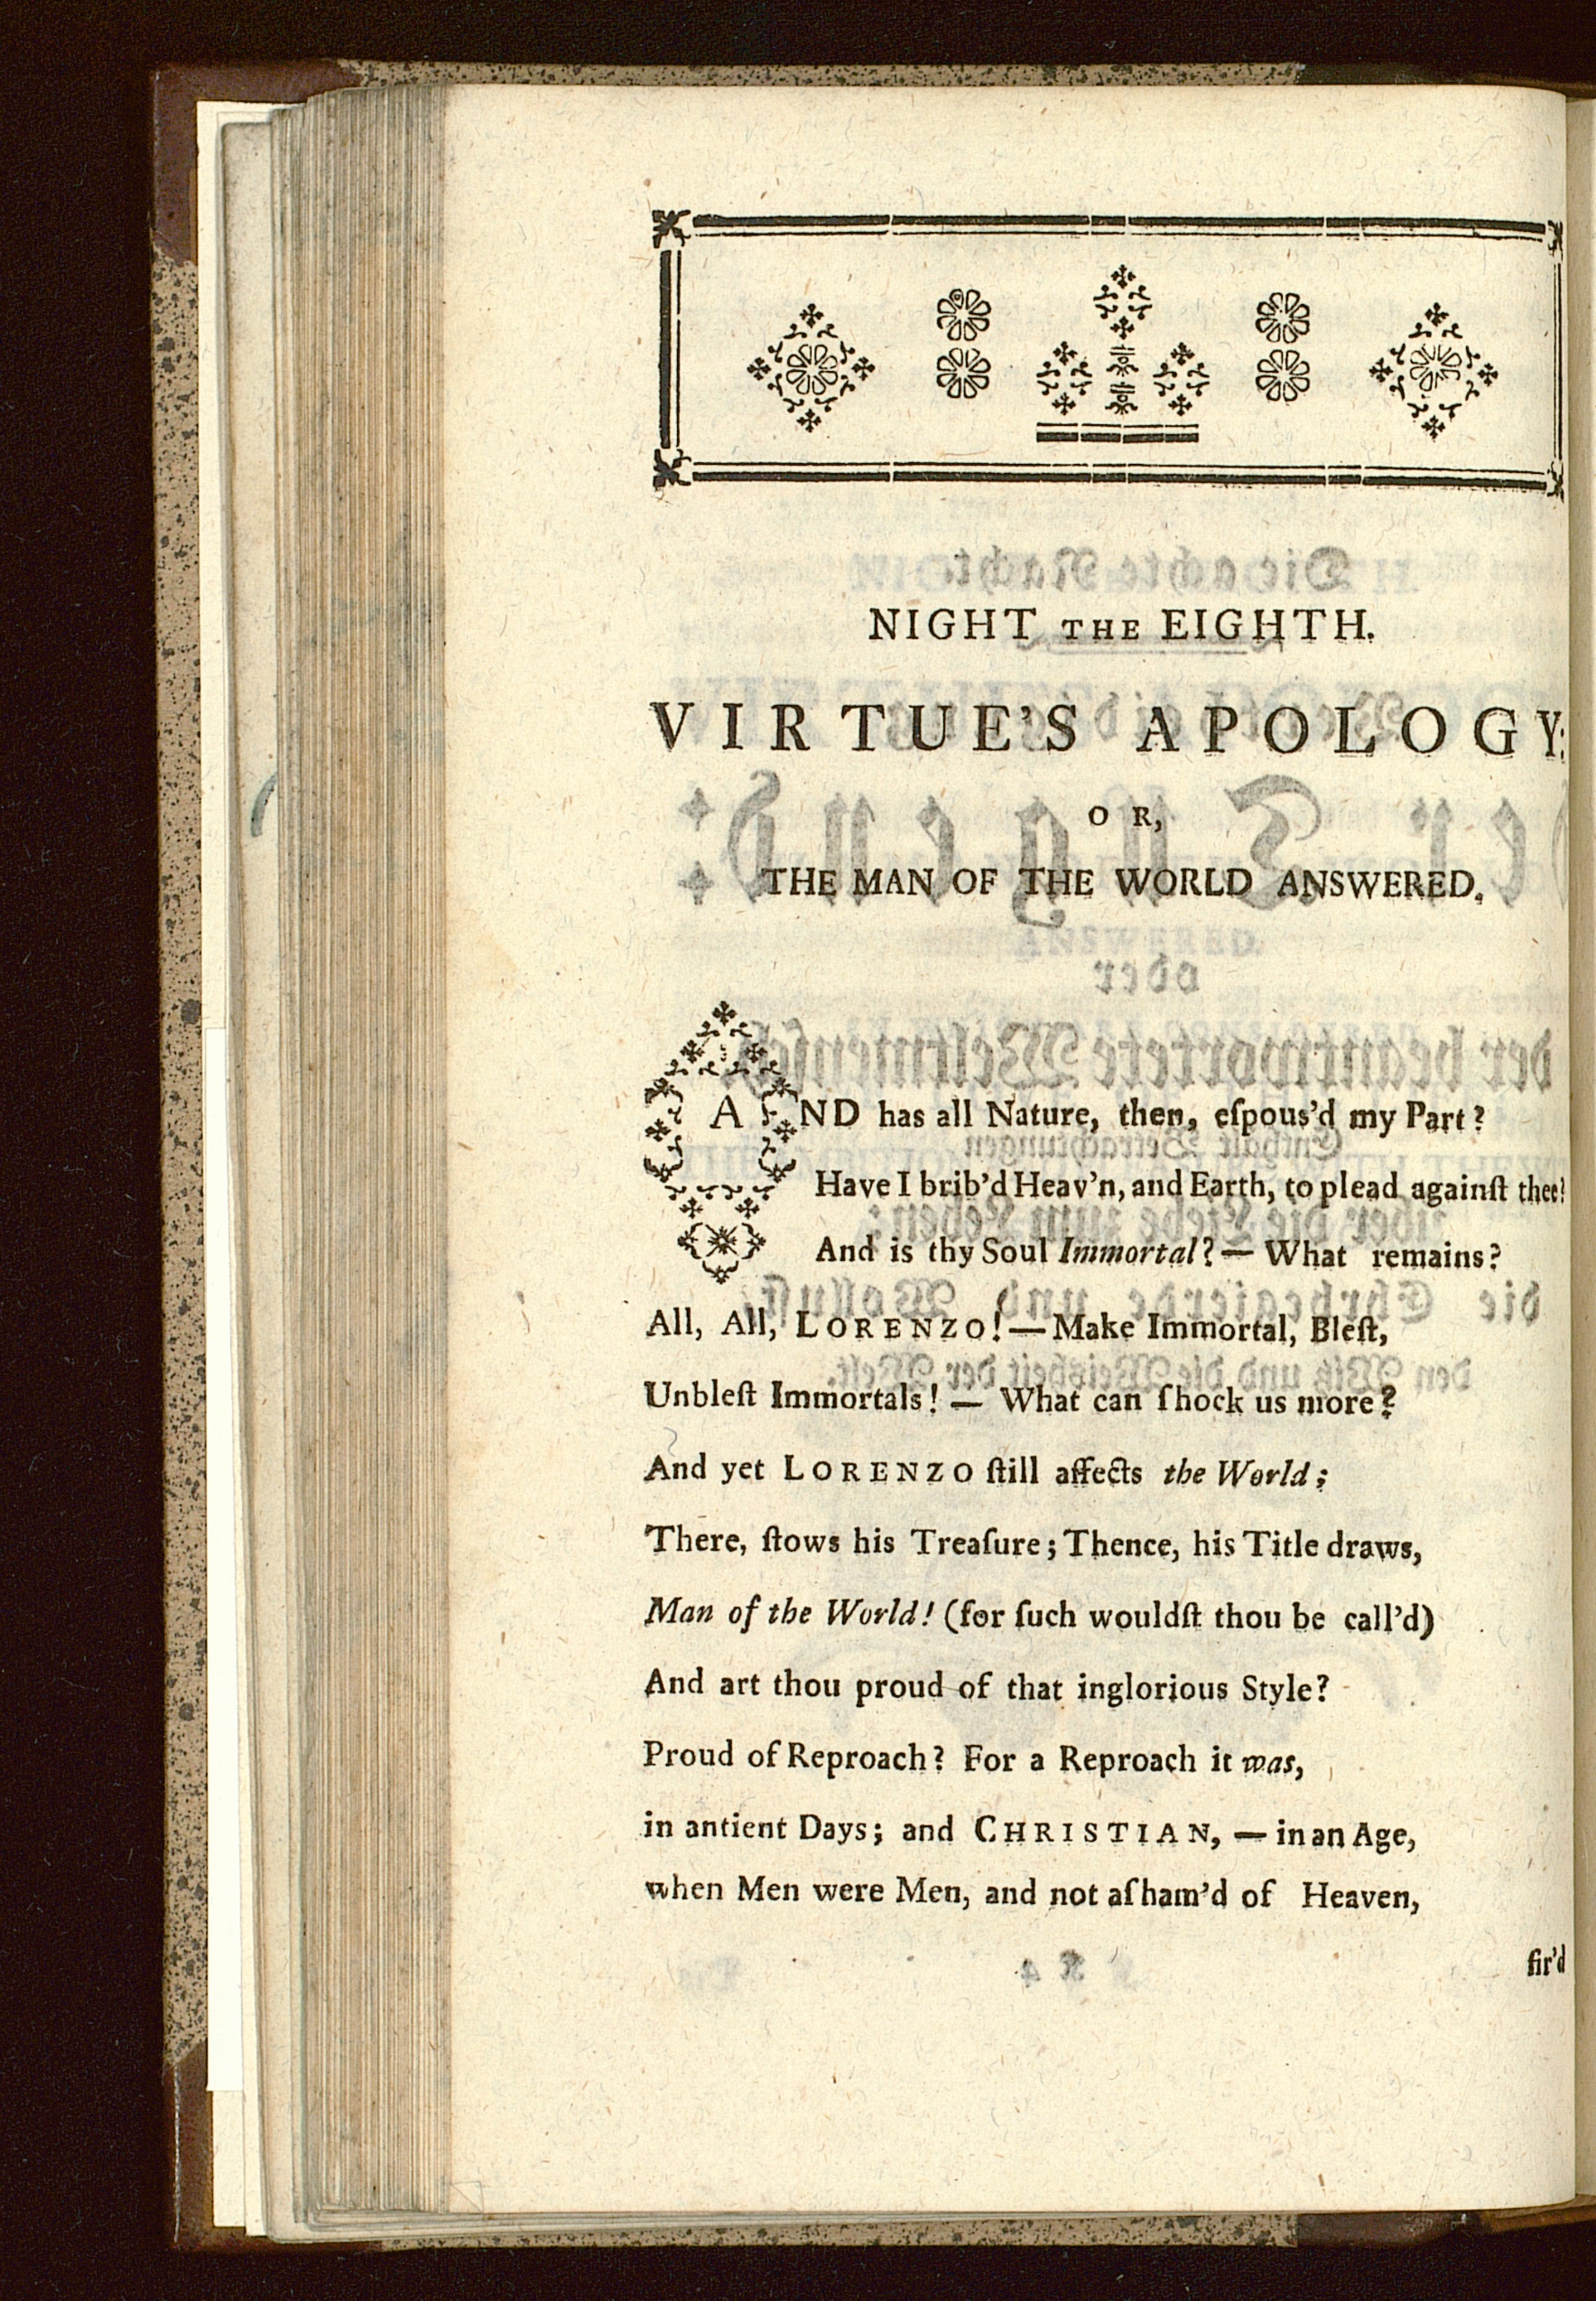 NIGHT THE EIGHTH.
VIRTUE'S APOLOGY:
OR,
THE MAN OF THE WORLD ANSWERED.
AND has all Nature, then, eſpous'd my Part?
Have I brib'd Heav'n, and Earth, to plead againſt thee?
And is thy Soul Immortal? — What remains?
All, All, LORENZO! — Make Immortal, Bleſt,
Unbleſt Immortals! — What can ſhock us more?
And yet LORENZO ſtill affects the World;
There, ſtows his Treaſure; Thence, his Title draws,
Man of the World! (for ſuch wouldſt thou be call'd)
And art thou proud of that inglorious Style?
Proud of Reproach? For a Reproach it was,
in antient Days; and CHRISTIAN, — in an Age,
when Men were Men, and not aſham'd of Heaven,
fir'd